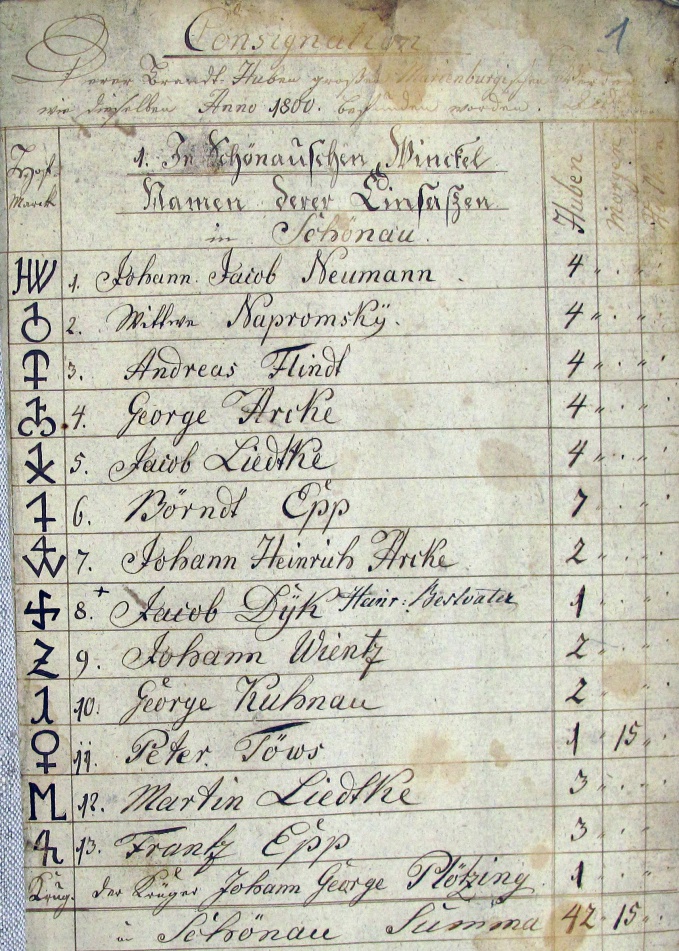 1
Consignation
Derer Brandt-Huben großen Marienburgischen
wie dieselben Anno 1800. befunden worden.
Hoff-Marck
1. In Schönauschen Winckel
Namen derer Einsaßen
in Schönau.
Huben Morgen
HW 1. Johann Jacob Neumann 4 " . "
2. Wittwe Napromskÿ. 4 " . "
3. Andreas Flindt 4 " . "
4. George Arcke 4 " . "
5. Jacob Liedtke 4 " . "
6. Börndt Epp 7 " . "
7. Johann Heinrich Arcke 2 " . "
8. + Jacob Dÿk Heinr: Bestvater 1 " . "
9. Johann Wientz 2 " . "
10. George Kuhnau 2 " . "
11. Peter Töws 1 15 "
12. Martin Liedtke 3 " . "
13. Frantz Epp 3 " . "
Krug. der Krüger Johann George Plötzing 1 " . "
in Schönau Summa 42 " 15 "